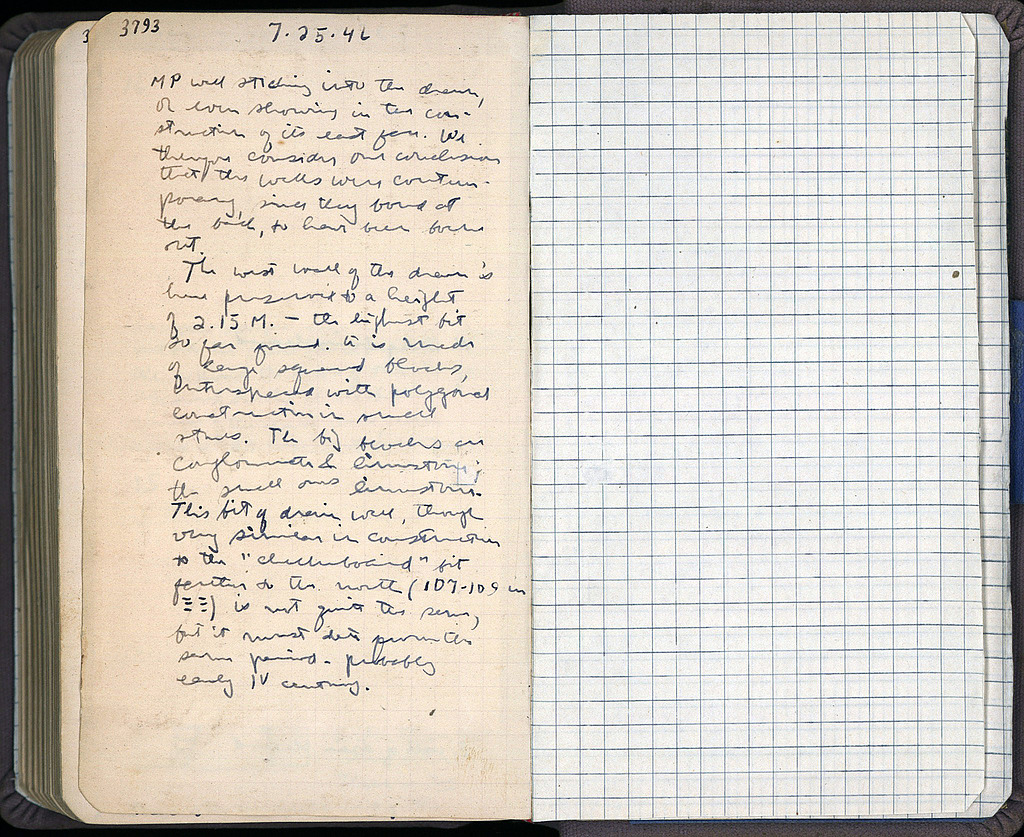 3793
7.25.46
MP wall sticking into the drain,
or even showing in the con-
struction of its east face. We
therefore consider our conclusion
that the walls were contem-
porary, since they bond at
the back, to have been borne
out.
The west wall of the drain is
here preserved to a height
of 2.15 M. – the highest bit
so far found. It is made
of large squared blocks,
interspersed with polygonal
construction in small
stones. The big blocks are
conglomerate & limestone;
the small ones limestone.
This bit of drain wall, though
very similar in construction
to the "checkerboard" bit
farther to the north (107-109 in
ΞΞ) is not quite the same,
but it must date from the
same period - probably
early IV century.